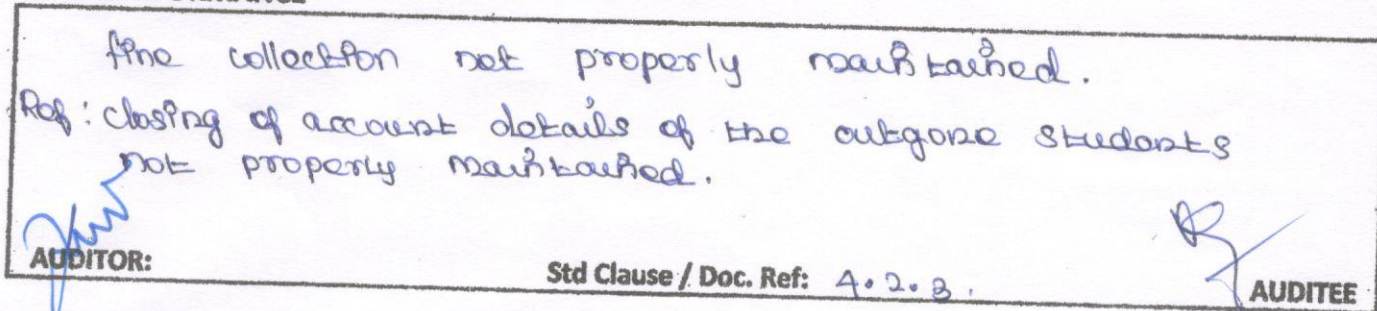 fine collection not properly maintained.
Ref: closing of account details of the outgone students
not properly maintained.
AUDITOR:
Std Clause / Doc. Ref: 4.2.3.
AUDITEE